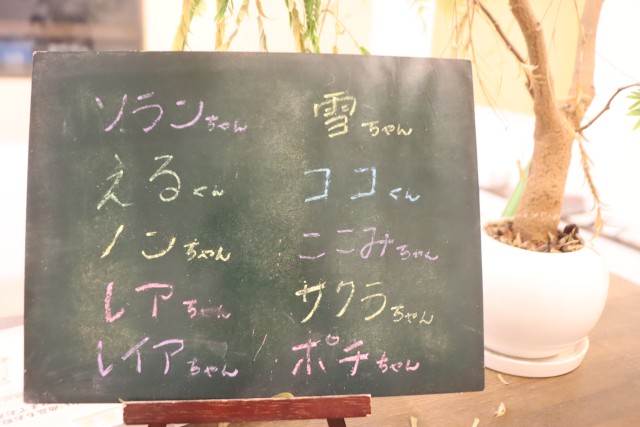 ソランちゃん 雪ちゃん
えるくん ココくん
ノンちゃん ここみちゃん
レアちゃん サクラちゃん
レイアちゃん ポチちゃん